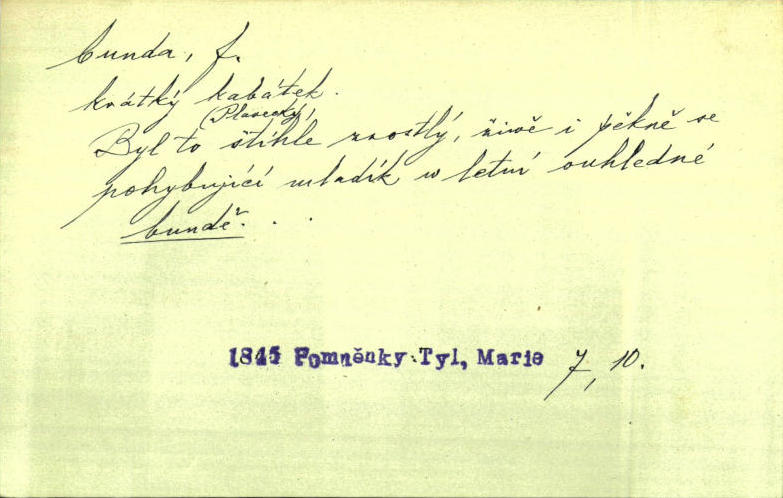 bunda, f.
krátký kabátek.
(Plavecký)
Byl to štíhle zrostlý, živě i pěkně se
pohybující mladík w letní ouhledné
bundě. . .
1845 Pomněnky Tyl, Marie 7, 10.